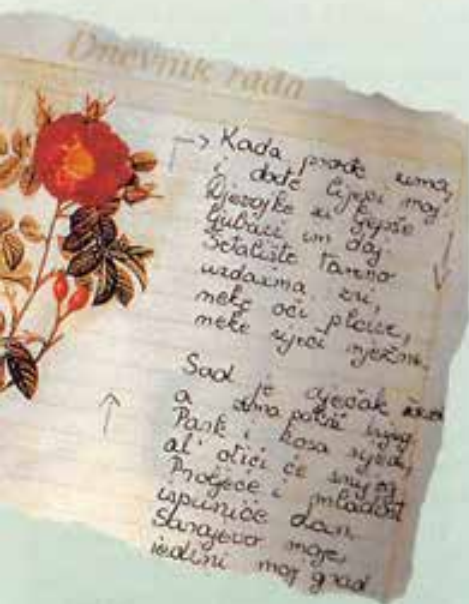 Dnevnik rada
Kada prođe zima,
i dođe lijepi maj
Djevojke su ljepše
ljubavi im daj.
Šetalište tamno
uzdasima zri,
neke oči plave,
neke riječi nježne.
Sad je dječak
a zima pokri snijeg
Park i kosa sijeda,
al' otići će snijeg
Proljeće i mladost
ispuniće dan,
Sarajevo moje,
jedini moj grad